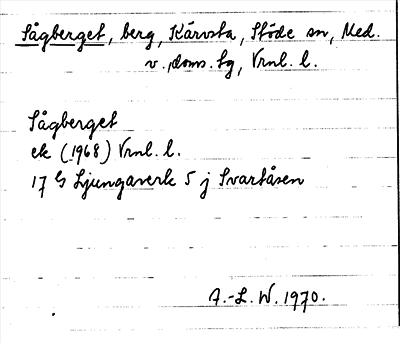 Sågberget, berg, Kärvsta, Stöde sn, Med.
v. doms. tg, Vrnl. l.
Sågberget
ek (1968) Vrnl. l.
17 G Ljungaverk 5 j Svartåsen
A.-L. W. 1970.